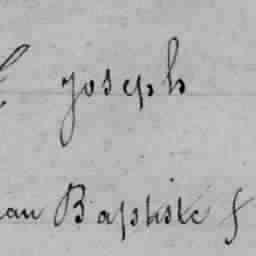 joseph
ean Baptiste f